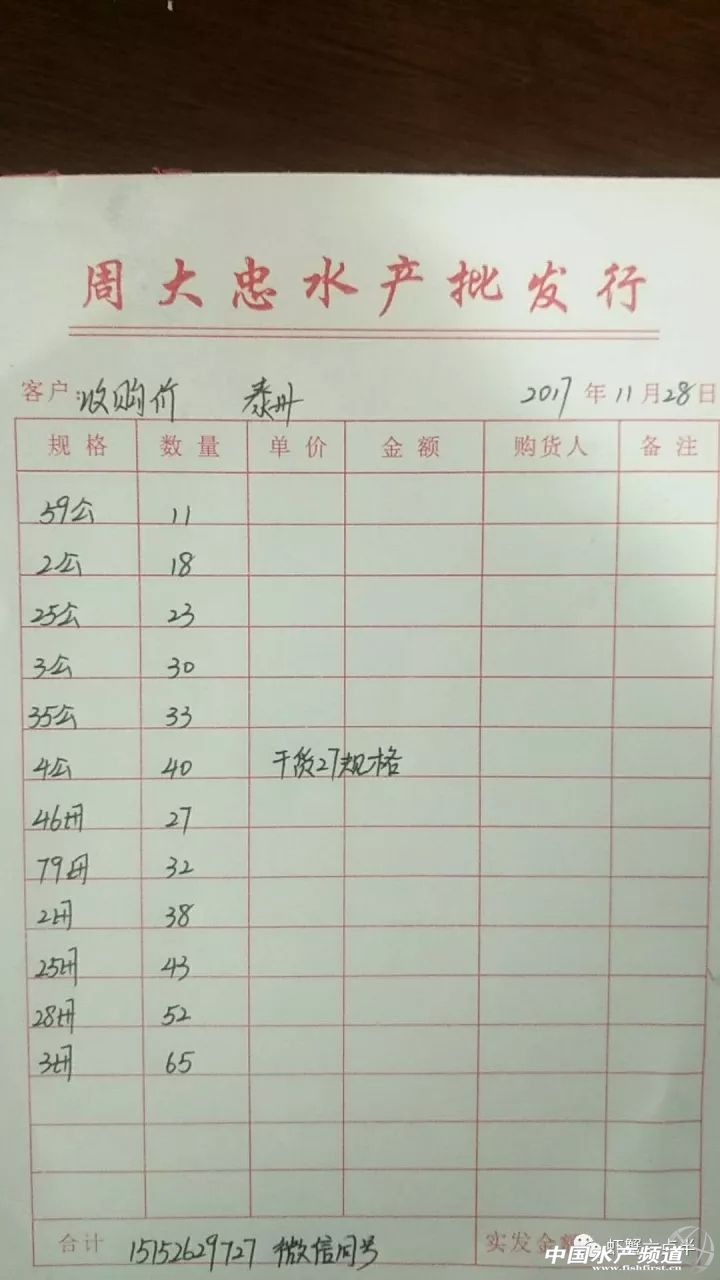 周大忠水产批发行
客户:收购价 泰州 2017年11月28日
规格 数量 单价 金额 购货人 备注
59公 11
2公 18
25公 23
3公 30
35公 33
4公 40 干货27规格
46母 27
79母 32
2母 38
25母 43
28母 52
3母 65
合计 15152629727 微信同号 实发金额
虾蟹六点半
中国水产频道
www.fishfirst.cn